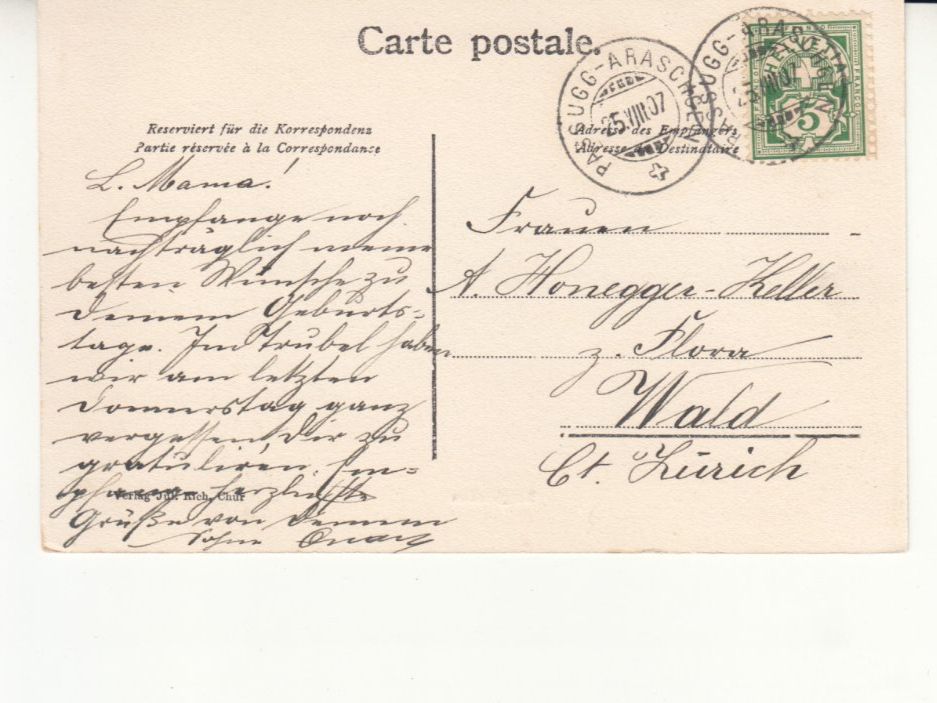 Carte postale.
PASSUGG-ARASCHGEN
25.VIII.07
PASSUGG-ARASCHGEN
25.VIII.07
HELVETIA
FRANCO
5
Reserviert für die Korrespondenz
Partie réservée à la Correspondance
Adresse des Empfängers
Adresse du Destinataire
L. Mama!
Empfange noch
nachträglich meine
besten Wünsche zu
Deinem Geburts=
tage. Im Trubel haben
wir am letzten
Donnerstag ganz
vergessen Dir zu
gratuliren. Em=
pfange herzlichste
Grüße von Deinem
Sohne
Verlag Jul. Rich, Chur
Frauen
A. Honegger-Keller
z. Flora
Wald
Ct. Zürich